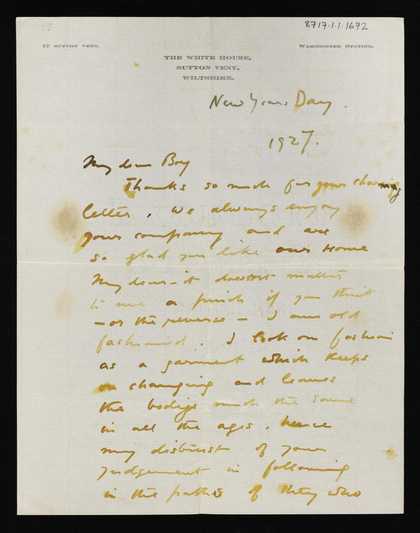 8717.1.1.1672
THE WHITE HOUSE,
SUTTON VENY,
WILTSHIRE.
New Years Day.
1927.
My dear Boy
Thanks so much for your charming
letter, we always enjoy
your company and are
so glad you like our Home
My dear - it doesn't matter
to me a pinch if you think
- or the reverse - I am old
fashioned. I look on fashion
as a garment which keeps
on changing and leaves
the bodys much the same
in all the ages, hence
my distrust of your
judgement in following
in the paths of they who